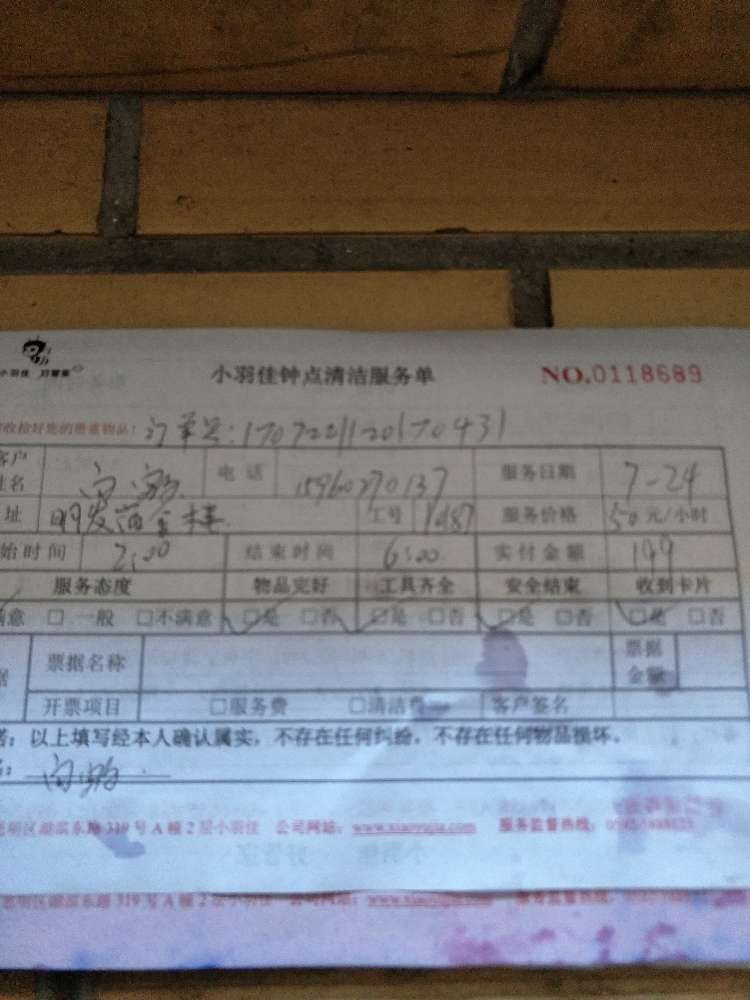 小羽佳 好管家
小羽佳钟点清洁服务单 NO.0118689
收拾好您的贵重物品! 订单号:1707221120170431
客户姓名 电话 15960270137 服务日期 7-24
址 明发商 工号 1087 服务价格 50元/小时
始时间 2:00 结束时间 6:00 实付金额 199
服务态度 物品完好 工具齐全 安全结束 收到卡片
满意 □一般 □不满意 □是 □否 □是 □否 □是 □否 □是 □否
据 票据名称 票据金额
开票项目 □服务费 □清洁费 客户签名
若:以上填写经本人确认属实,不存在任何纠纷,不存在任何物品损坏。
思明区湖滨东路319号A幢2层小羽佳 公司网站:www.xiaoyujia.com 服务监督热线:
思明区湖滨东路319号A幢2层小羽佳 公司网站:www.xiaoyujia.com 服务监督热线: